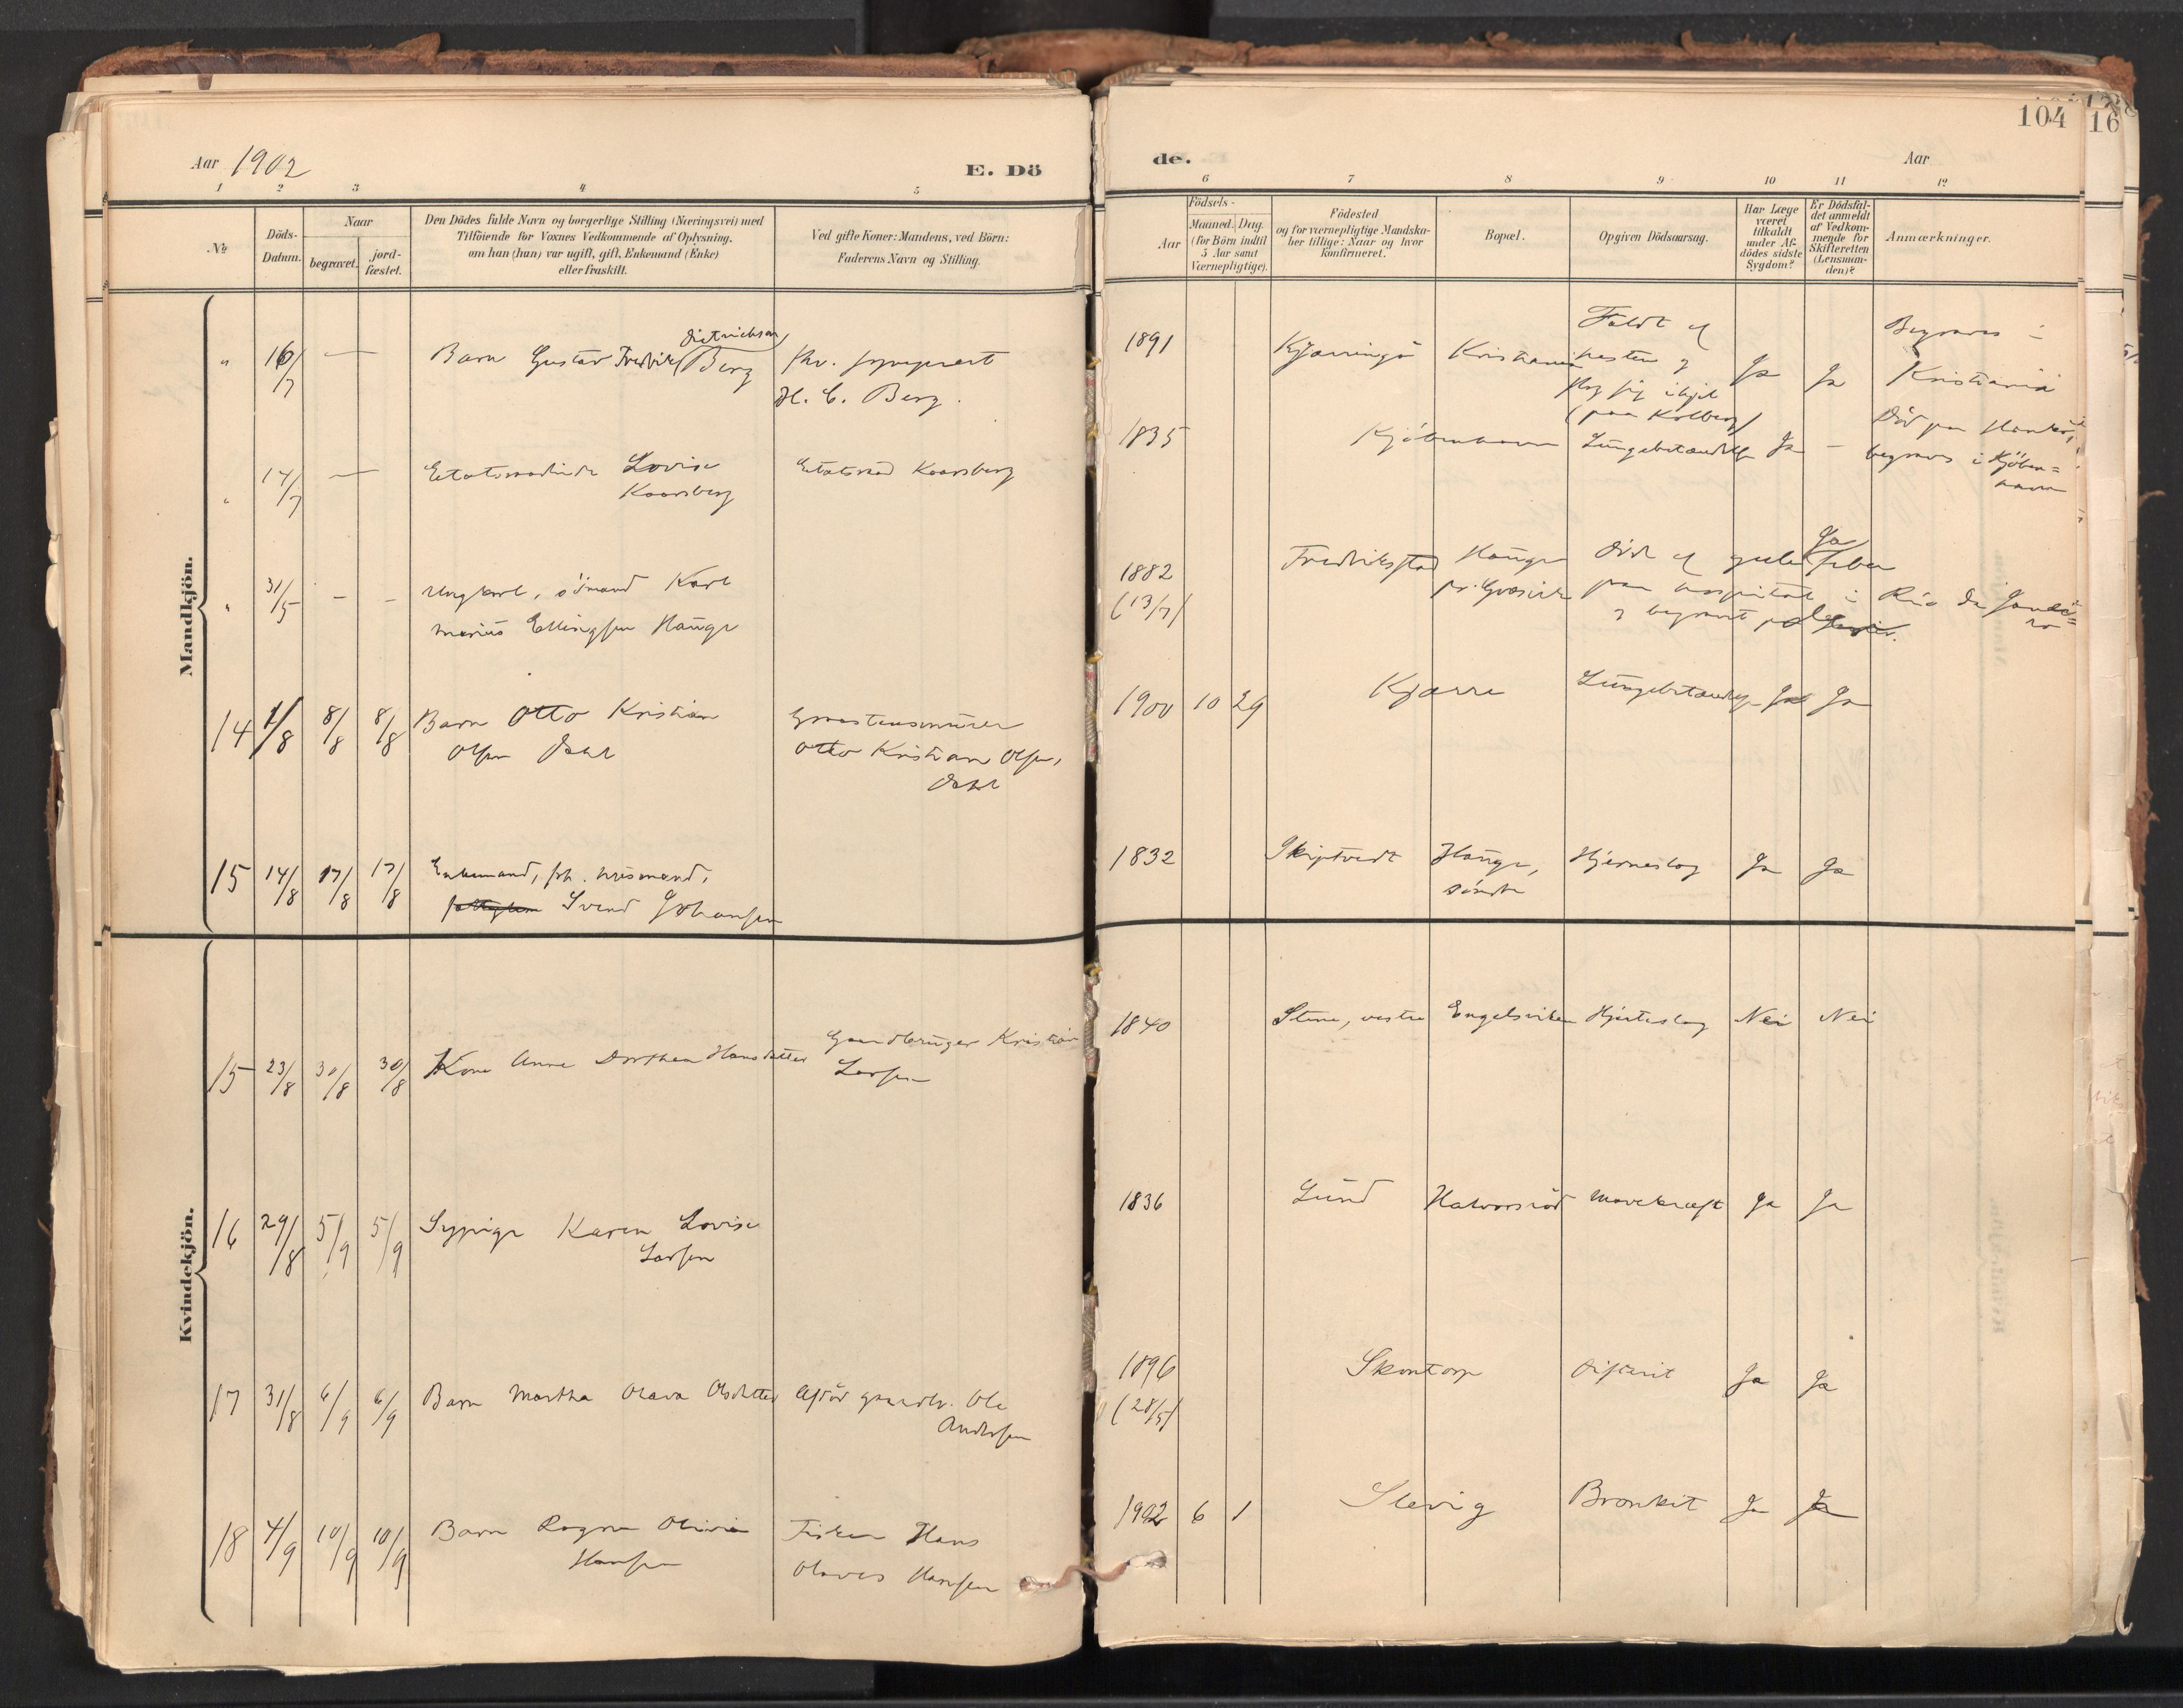 104
16
Aar 1902
E. Dö
de.
Aar
1 2 3 4 5
6 7 8 9 10 11 12
No
Döds-
Datum.
Naar
begravet.
jord-
fæstet.
Den Dödes fulde Navn og borgerlige Stilling (Næringsvei) med
Tilföiende for Voxnes Vedkommende af Oplysning,
om han (hun) var ugift, gift, Enkemand (Enke)
eller fraskilt.
Ved gifte Koner: Mandens, ved Börn:
Faderens Navn og Stilling.
Födsels-
Aar
Maaned. Dag.
(for Börn indtil
5 Aar samt
Værnepligtige).
Födested
og for værnepligtige Mandska-
ber tillige: Naar og hvor
konfirmeret.
Bopæl.
Opgiven Dödsaarsag.
Har Læge
været
tilkaldt
under Af-
dödes sidste
Sygdom?
Er Dödsfal-
det anmeldt
af Vedkom-
mende for
Skifteretten
(Lensman-
den)?
Anmærkninger.
Mandkjön.
" 16/7 —
Barn Gustav Fredrik Dietrichson Berg
H. C. Berg.
1891
Kjærringö
Kristiania
Faldt af
hesten og
slog sig ihjel
(paa Kolberg)
Ja
Ja
Begraves i
Kristiania
" 14/7 —
Etatsraadinde Lovise
Kaarsberg
Etatsraad Kaarsberg
1835
Kjöbenhavn
Lungebetændelse
Ja
—
Död paa Hankö,
begraves i Kjöben=
havn
" 31/5 - -
Ungkarl, sömand Karl
Marius Ellingsen Hauge
1882
(13/7)
Fredriksstad
Hauge
pr. Græsvik
Död af gule feber
paa hospitalet i Rio de Janei=
ro
og begravet
Ja
14 1/8 8/8 8/8
Barn Otto Kristian
Olsen Dahl
Graastensmurer
Otto Kristian Olsen,
Dahl
1900 10 29
Kjærre
Lungebetændelse
Ja
Ja
15 14/8 17/8 17/8
Enkemand, fhv. husmand,
Svend Johansen
1832
Skiptvedt
Hauge,
söndre
Hjerneslag
Ja
Ja
Kvindekjön.
15 23/8 30/8 30/8
Kone Anne Dorthea Hansdatter
Gaardbruger Kristian
Larsen
1840
Stene, vestre
Engelsviken
Hjerteslag
Nei
Nei
16 29/8 5/9 5/9
Sypige Karen Lovise
Larsen
1836
Lund
Halvorsröd
Mavekræft
Ja
Ja
17 31/8 6/9 6/9
Barn Martha Olava Olsdatter
Afdöd gaardbr. Ole
Andersen
1896
(28/5)
Skontorp
Difterit
Ja
Ja
18 4/9 10/9 10/9
Barn Ragna Olivia
Hansen
Fisker Hans
Olaves Hansen
1902 6 1
Slevig
Bronkit
Ja
Ja